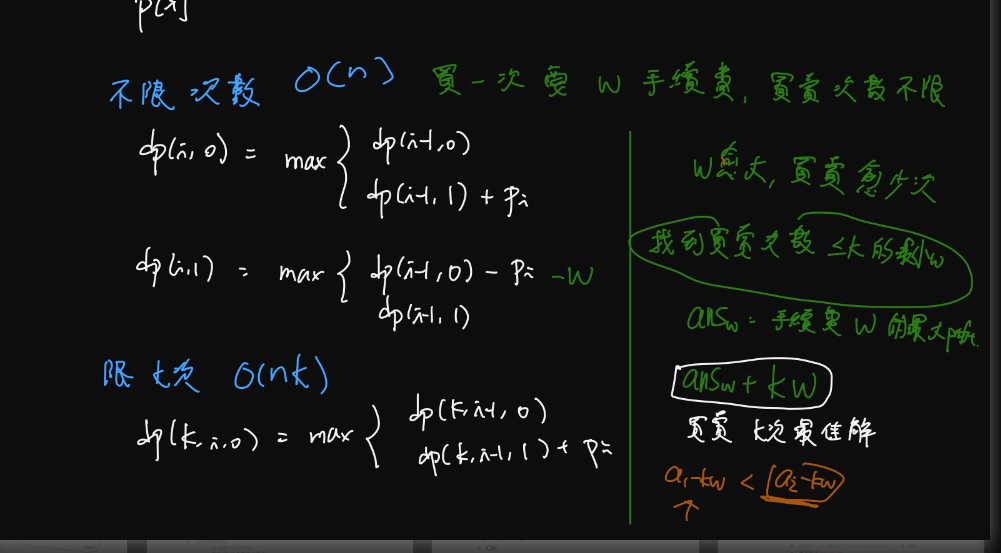 p[x]
不限次數 O(n)
買一次要 W 手續費, 買賣次數不限
dp(i, 0) = max { dp(i-1, 0)
dp(i-1, 1) + Pi
dp(i,1) = max { dp(i-1, 0) - Pi - W
dp(i-1, 1)
限 k次 O(nk)
dp(k, i, 0) = max { dp(k, i-1, 0)
dp(k, i-1, 1) + Pi
W愈大, 買賣愈少次
找到買賣次數 ≤k 的最小w
answ = 手續費 W 的最大profit.
answ + kw
買賣 k次最佳解
a1-kw < a2-kw
↑